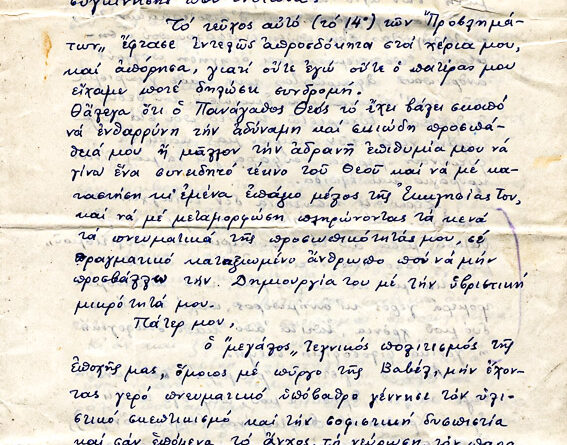 συγκίνησης
Τό τεῦχος αὐτό (τό 14ο) τῶν "Προβλημά-
των„ ἔφτασε ἐντελῶς ἀπροσδόκητα στά χέρια μου,
καί ἀπόρησα, γιατί οὔτε ἐγώ οὔτε ὁ πατέρας μου
εἴχαμε ποτέ δηλώσει συνδρομή.
Θἄλεγα ὅτι ὁ Πανάγαθος Θεός τό ἔχει βάλει σκοπό
νά ἐνθαρρύνη τήν ἀδύναμη καί σκιώδη προσπά-
θειά μου ἤ μᾶλλον τήν ἀδρανῆ ἐπιθυμία μου νά
γίνω ἕνα συνειδητό τέκνο τοῦ Θεοῦ καί νά μέ κα-
ταστήση κι' ἐμένα ἐπάξιο μέλος τῆς Ἐκκλησίας Του,
καί νά μέ μεταμορφώση πληρώνοντας τά κενά
τά πνευματικά τῆς προσωπικότητάς μου, σέ
πραγματικό καταξιωμένο ἄνθρωπο πού νά μήν
προσβάλλω τήν Δημιουργία του μέ τήν ὑβριστική
μικρότητά μου.
Πάτερ μου,
ὁ "μεγάλος„ τεχνικός πολιτισμός τῆς
ἐποχῆς μας, ὅμοιος μέ πύργο τῆς Βαβέλ, μήν ἔχον-
τας γερό πνευματικό ὑπόβαθρο γέννησε τόν ὑλι-
στικό σκεπτικισμό καί τήν σοφιστική δυσπιστία
καί σάν ἑπόμενα τό ἄγχος, τή νεύρωση, τόν